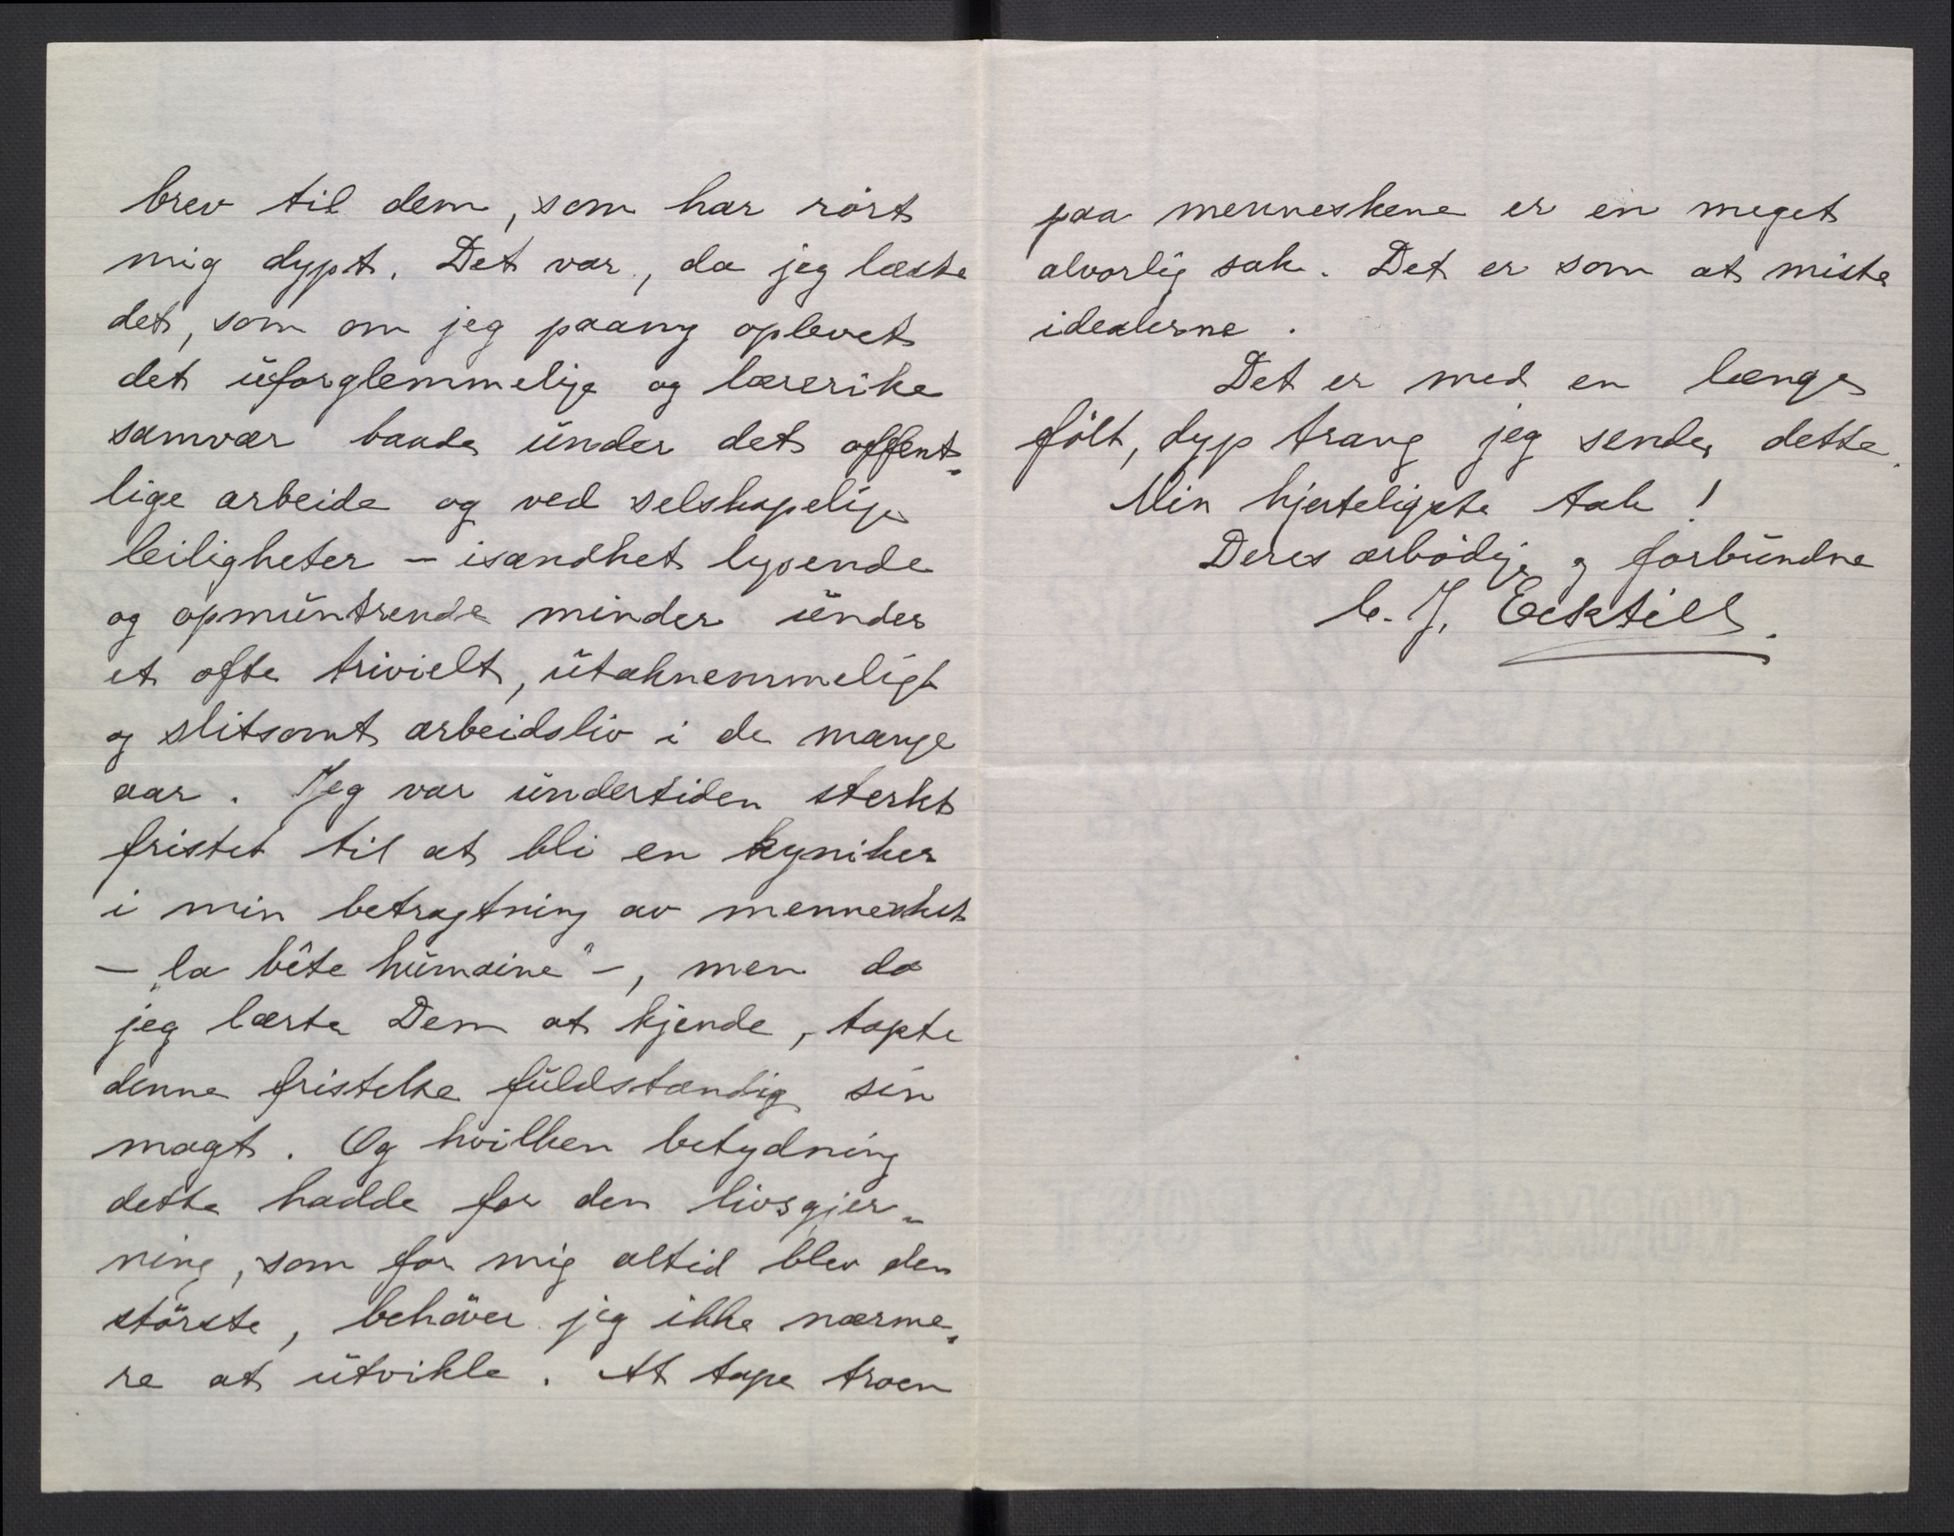 brev til dem, som har rørt
mig dypt. Det var, da jeg læste
det, som om jeg paany oplevet
det uforglemmelige og lærerike
samvær baade under det offent-
lige arbeide og ved selskapelige
leiligheter – isandhet lysende
og opmuntrende minder under
et ofte trivielt, utaknemmeligt
og slitsomt arbeidsliv i de mange
aar. Jeg var undertiden sterkt
fristet til at bli en kyniker
i min betragtning av mennesket
– „la bête humaine" –, men da
jeg lærte Dem at kjende, tapte
denne fristelse fuldstændig sin
magt. Og hvilken betydning
dette hadde for den livsgjer-
ning, som for mig altid blev den
største, behøver jeg ikke nærme-
re at utvikle. At tape troen
paa menneskene er en meget
alvorlig sak. Det er som at miste
idealerne.
Det er med en længe
følt, dyp trang jeg sender dette.
Min hjerteligste tak!
Deres ærbødige og forbundne
C. J. Eckhell.